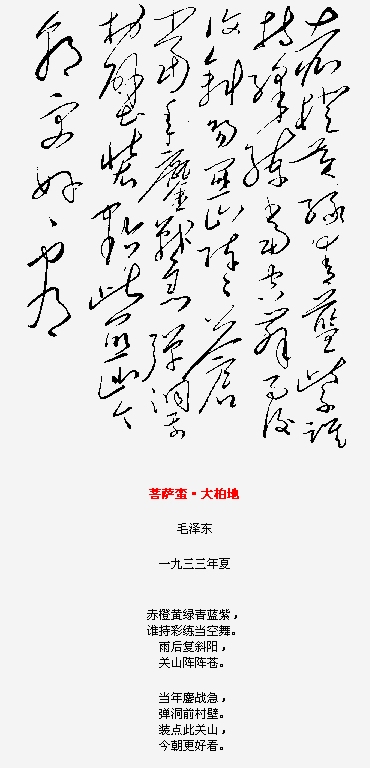 赤橙黃綠青藍紫誰
持綵練當空舞雨後
復斜陽關山陣々蒼
當年鏖戰急彈洞前
村壁裝點此關山今
朝更好看
菩萨蛮·大柏地
毛泽东
一九三三年夏
赤橙黄绿青蓝紫，
谁持彩练当空舞。
雨后复斜阳，
关山阵阵苍。
当年鏖战急，
弹洞前村壁。
装点此关山，
今朝更好看。